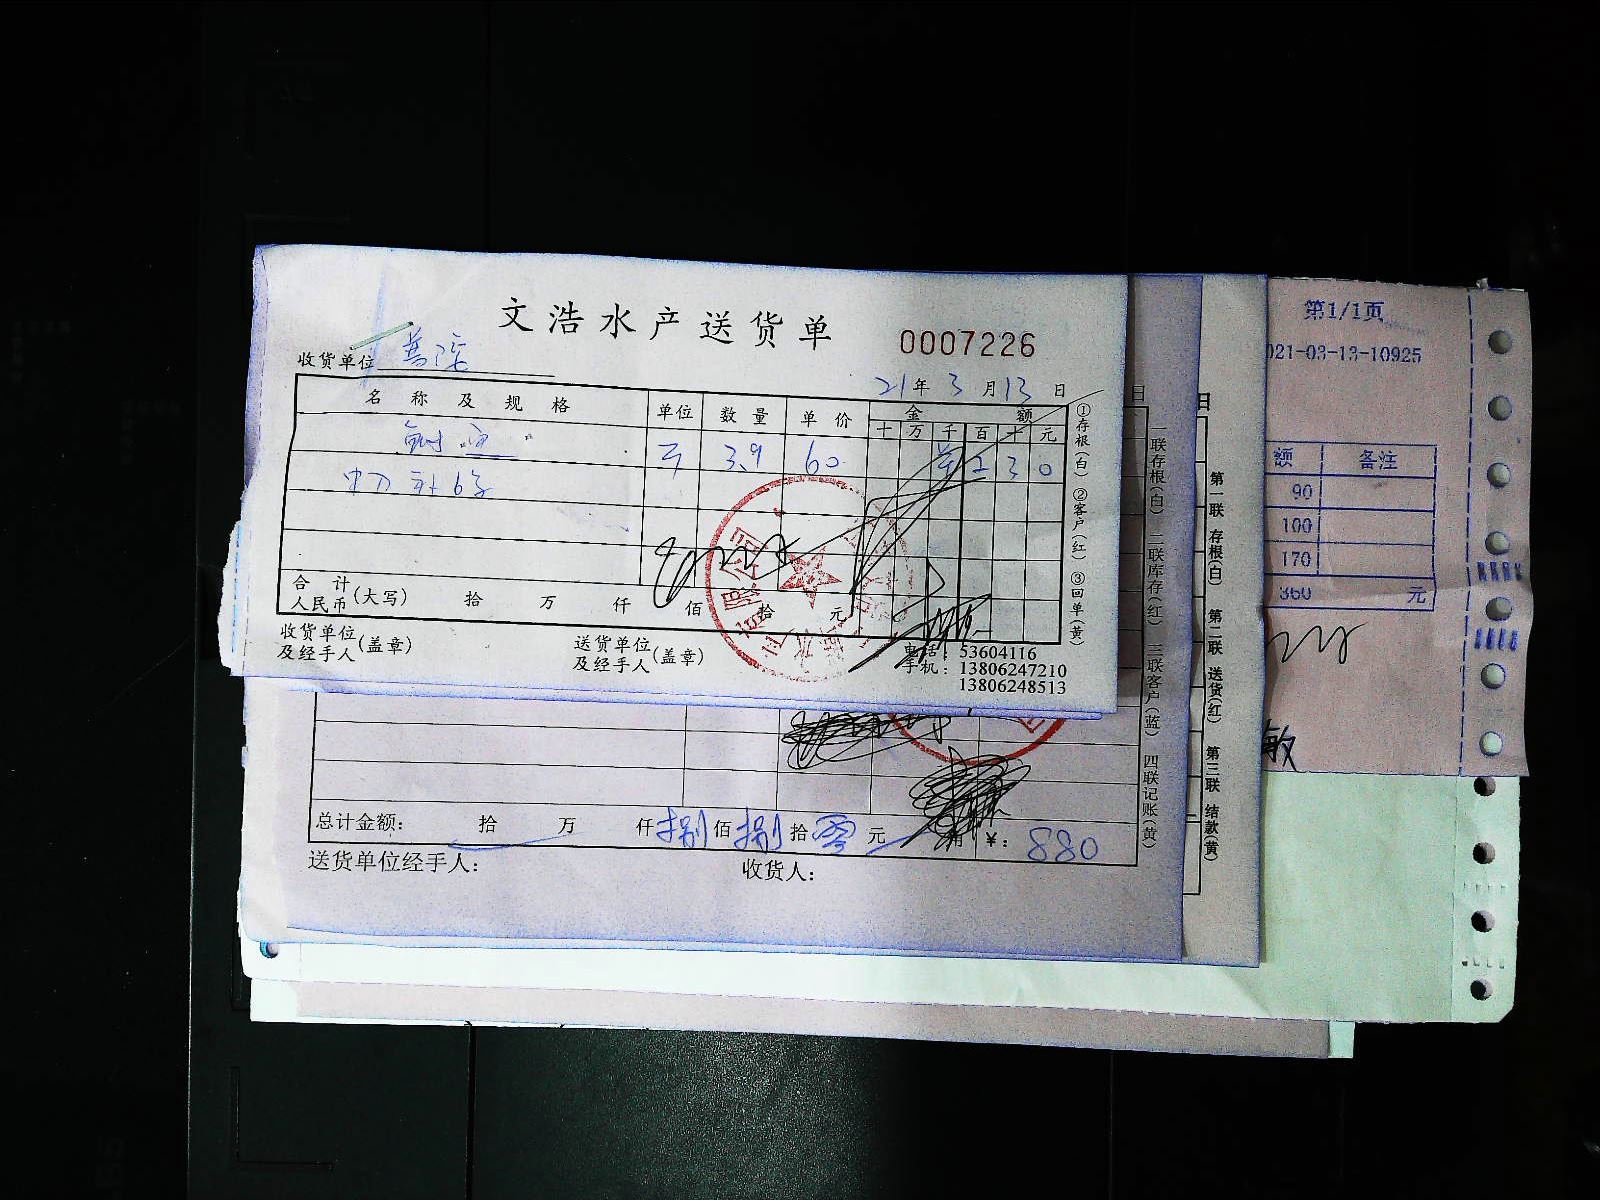 文浩水产送货单
0007226
收货单位
21年3月13日
名称及规格 单位 数量 单价 金额
十 万 千 百 十 元
3.9 60 2 3 0
合计
人民币(大写) 拾 万 仟 佰 拾 元
收货单位
及经手人(盖章)
送货单位
及经手人(盖章)
电话:53604116
手机:13806247210
13806248513
①存根(白) ②客户(红) ③回单(黄)
日
一联存根(白) 二联库存(红) 三联客户(蓝) 四联记账(黄)
总计金额: 拾 万 仟捌佰捌拾零元 角 ¥:880
送货单位经手人: 收货人:
日
第一联 存根(白) 第二联 送货(红) 第三联 结款(黄)
第1/1页
021-03-13-10925
额 备注
90
100
170
360 元
敏